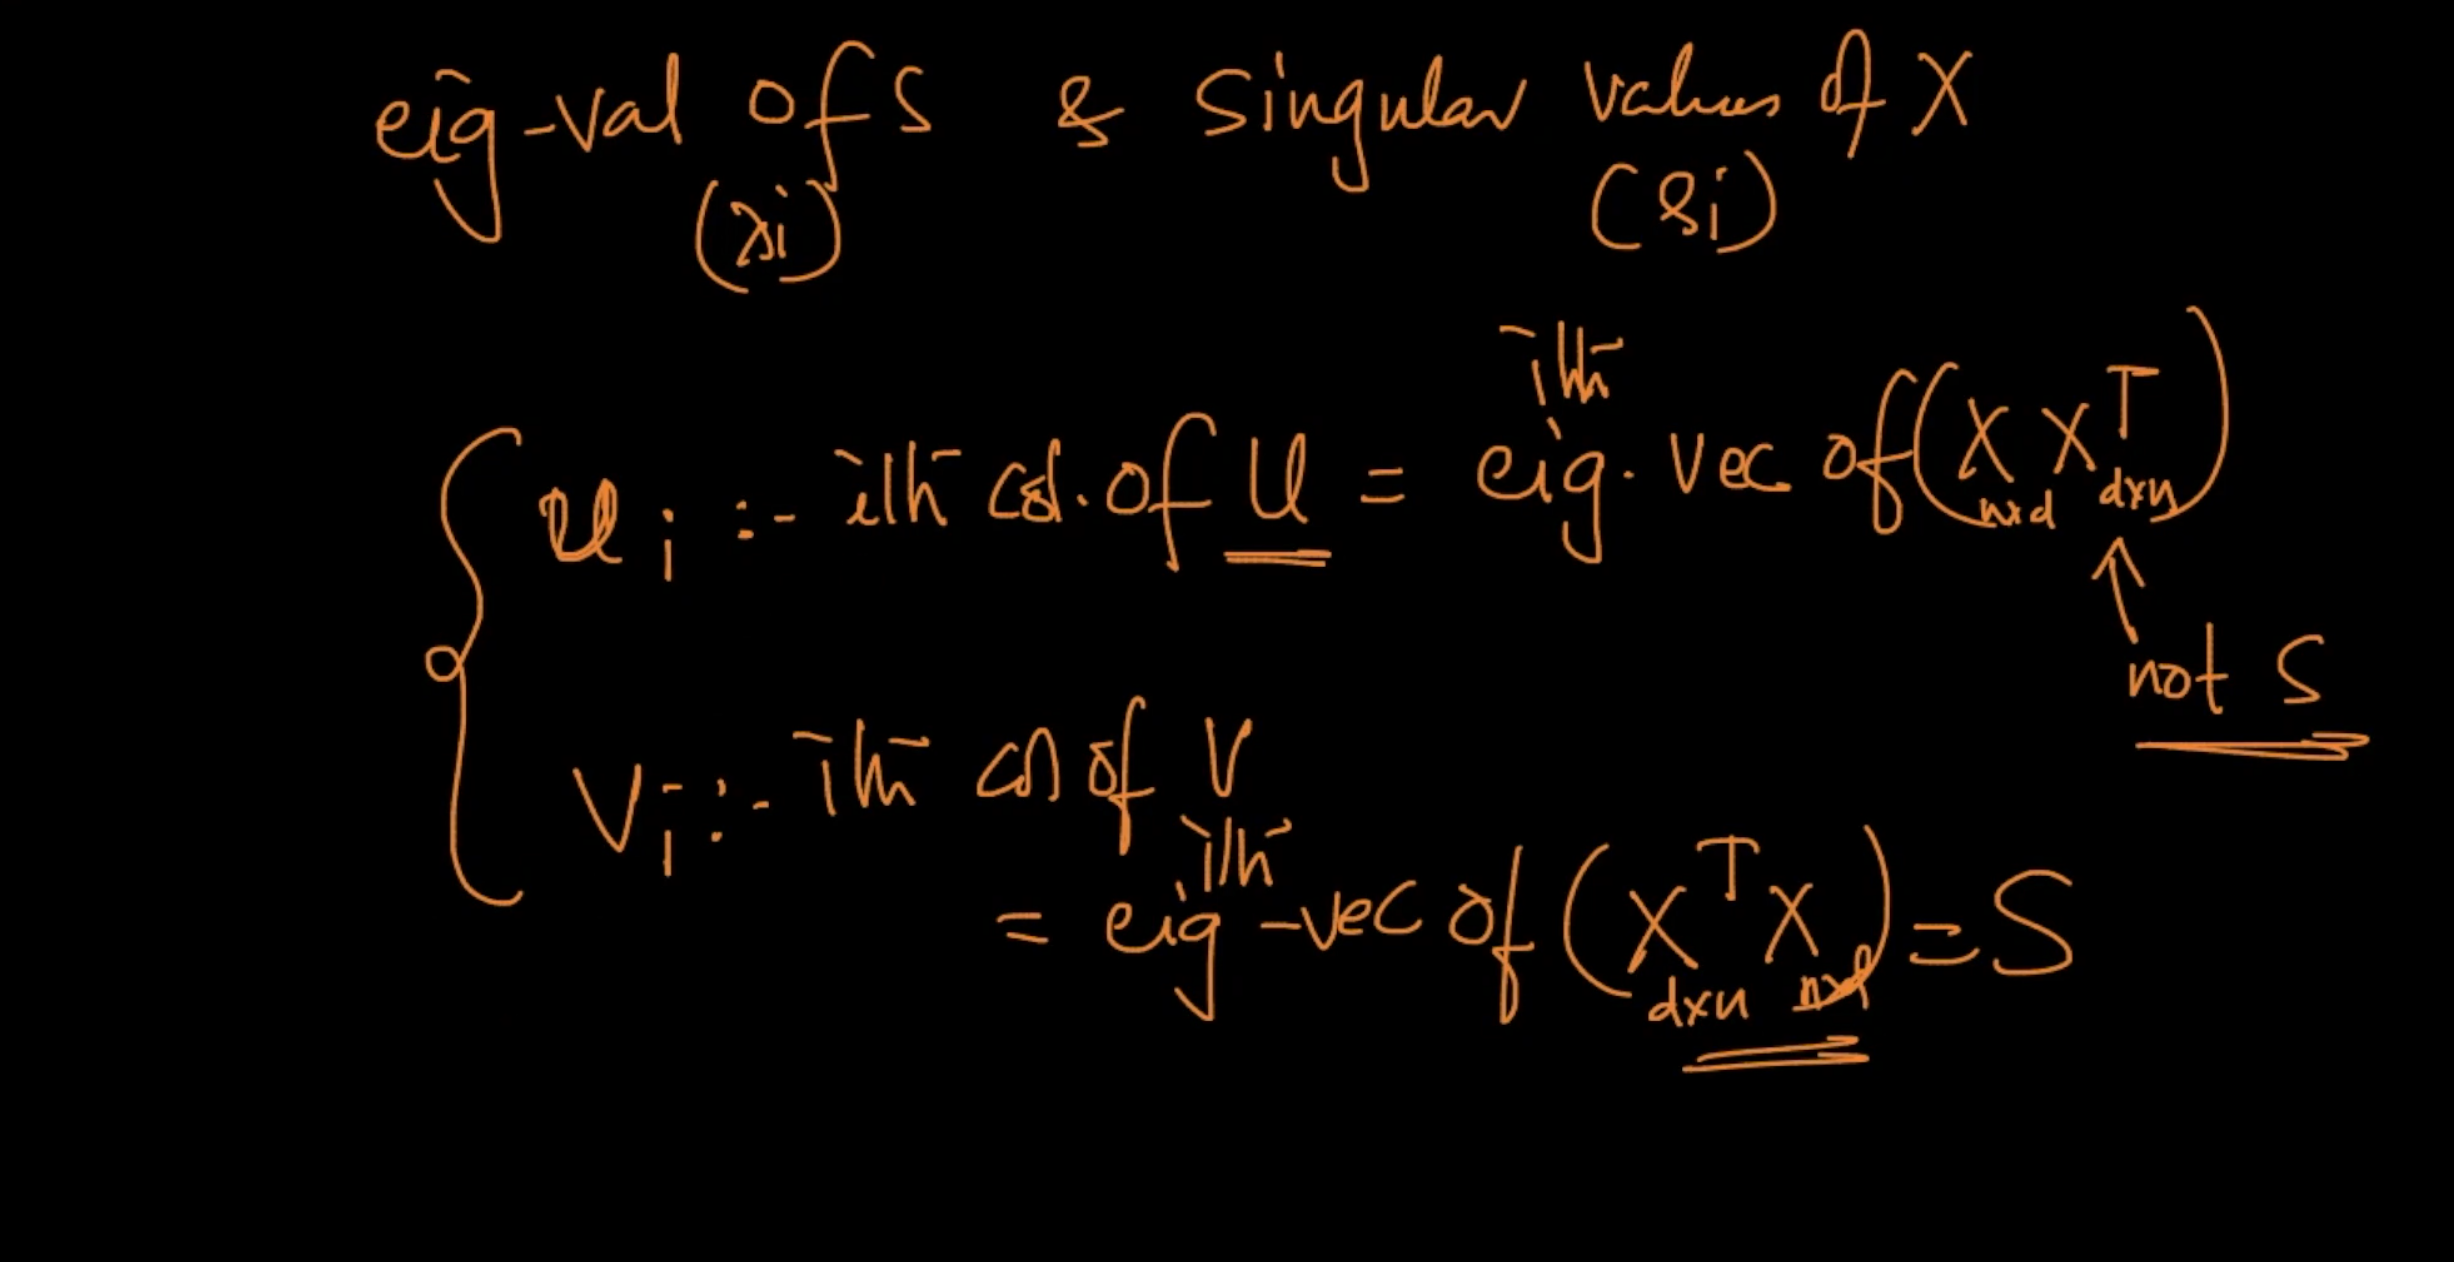 eig-val of S & Singular values of X
(λi) (si)
ith
ui :- ith col. of U = eig. vec of (X XT)
nxd dxn
not S
Vi :- ith col of V
ith
= eig-vec of (XT X) = S
dxn nxd